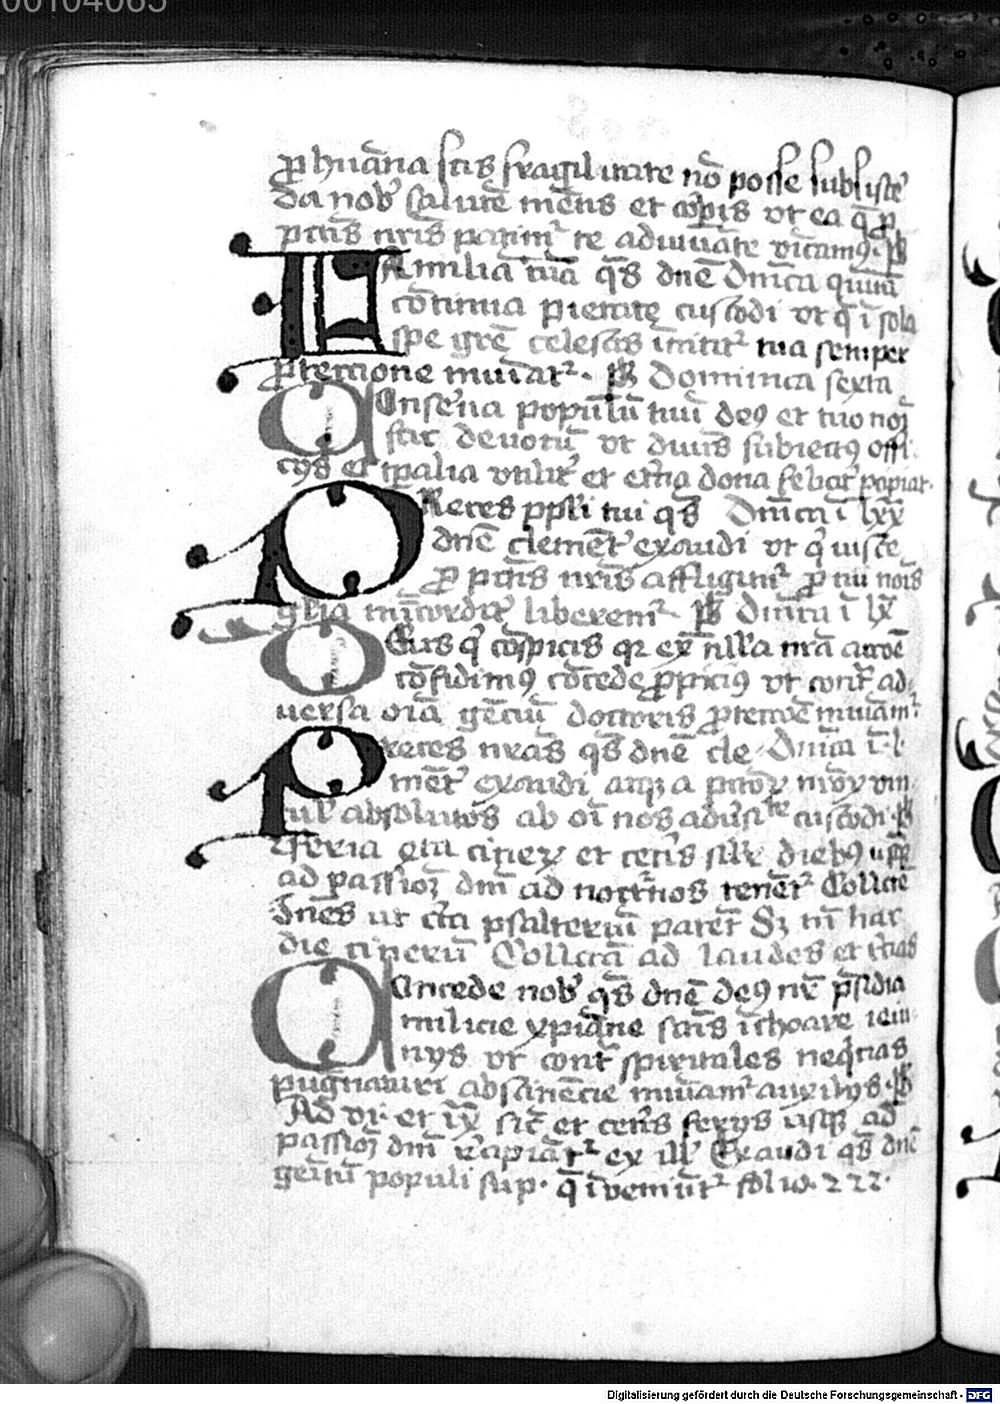 00104065
ꝓ hūana scis fragilitate nō posse subsistē
da nob̛ salutē mētis et corꝑis vt ea q̄ ꝓ
pctīs nr̄is patim᷑ te adiuuāte vīcamꝰ. p̄
Familiā tuā q̄s dn̄e Dn̄ica quīta
cōtinua pietate custodi vt q̄ ī sola
spe grē celestis īnitit᷑ tua semper
ꝓtectione muniat᷑. Dominica sexta
Conserua populū tuū deꝰ et tuo noī
fac deuotū vt diuīs subiectꝰ offi
cijs et tꝑalia vtilit̛ et et̛na dona
Preces ppli tui q̄s Dn̄ica ī lxx
dn̄e clemēt̛ exaudi vt q̄ iuste
ꝓ pctīs nr̄is affligim᷑ ꝓ tui nois
gl̄ia mīcordit̛ liberem᷑ Dn̄ica ī lx
Deus q̄ cōspicis qꝛ ex nulla nr̄a actōe
cōfidimꝰ cōcede ꝓpiciꝰ vt contᷓ ad
uersa oīa gēciū doctoris ꝓtectōe muniam᷑
Preces nr̄as q̄s dn̄e cle Dn̄ica ī l
mēt̛ exaudi atqꝫ a pctōꝝ nr̄oꝝ vin
cul̛ absolutos ab oī nos aduersitᵗᵉ custodi
Feria qͬta cineꝝ et cet̛is diebꝰ usqꝫ
ad passioꝫ dn̄i ad noctnos tenēt᷑ Collcē
die cinerū Collcā ad laudes et
Concede nob̛ q̄s dn̄e deꝰ nr̄e p̄sidia
milicie xp̄iane scīs īchoare ieiu
nijs vt contᷓ spirituales neqͥcias
pugnaturi abstinēcie muniam᷑ auxilijs.
Ad vi. et ix sic et cet̛is ferijs usqꝫ ad
passioꝫ dn̄i ex ill̛ Exaudi q̄s dn̄e
gemitū populi sup. q̄ īveniūt᷑ folio. 222.
Digitalisierung gefördert durch die Deutsche Forschungsgemeinschaft - DFG